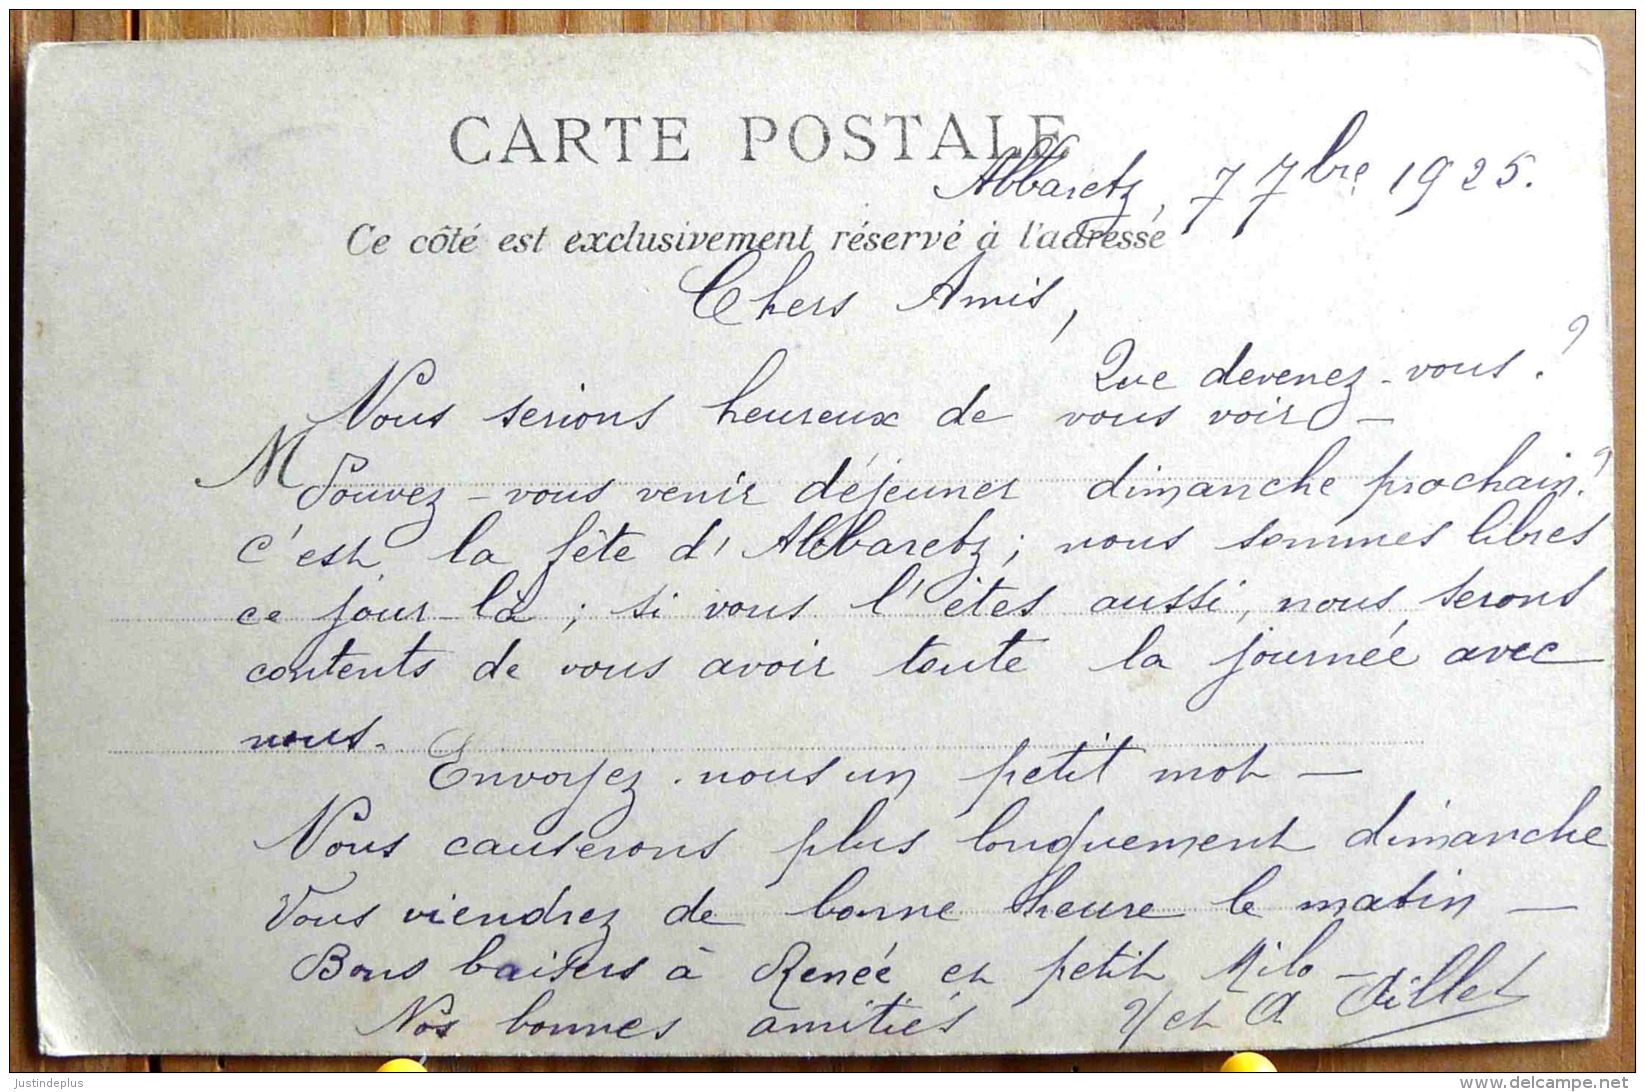 CARTE POSTALE
Abbaretz, 7 7bre 1925.
Ce côté est exclusivement réservé à l'adresse
Chers Amis,
Que devenez-vous ?
Nous serions heureux de vous voir -
M
Pouvez-vous venir déjeuner dimanche prochain ?
C'est la fête d'Abbaretz ; nous sommes libres
ce jour-là ; si vous l'êtes aussi, nous serons
contents de vous avoir toute la journée avec
nous.
Envoyez-nous un petit mot -
Nous causerons plus longuement dimanche
Vous viendrez de bonne heure le matin -
Bons baisers à Renée et petit Milo -
Nos bonnes amitiés et A
justindeplus
www.delcampe.net